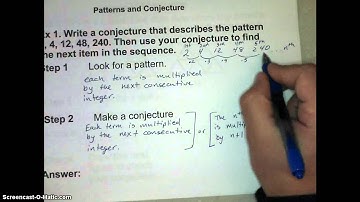 Patterns and Conjecture
x 1. Write a conjecture that describes the pattern
, 4, 12, 48, 240. Then use your conjecture to find
he next item in the sequence.
1st 2nd 3rd 4th 5th
2 4 12 48 240 ... nth
×2 ×3 ×4 ×5
Step 1 Look for a pattern.
each term is multiplied
by the next consecutive
integer.
Step 2 Make a conjecture
Each term is multiplied
by the next consecutive
integer.
or
The n
is multip
by n+1
Answer:
Screencast-O-Matic.com